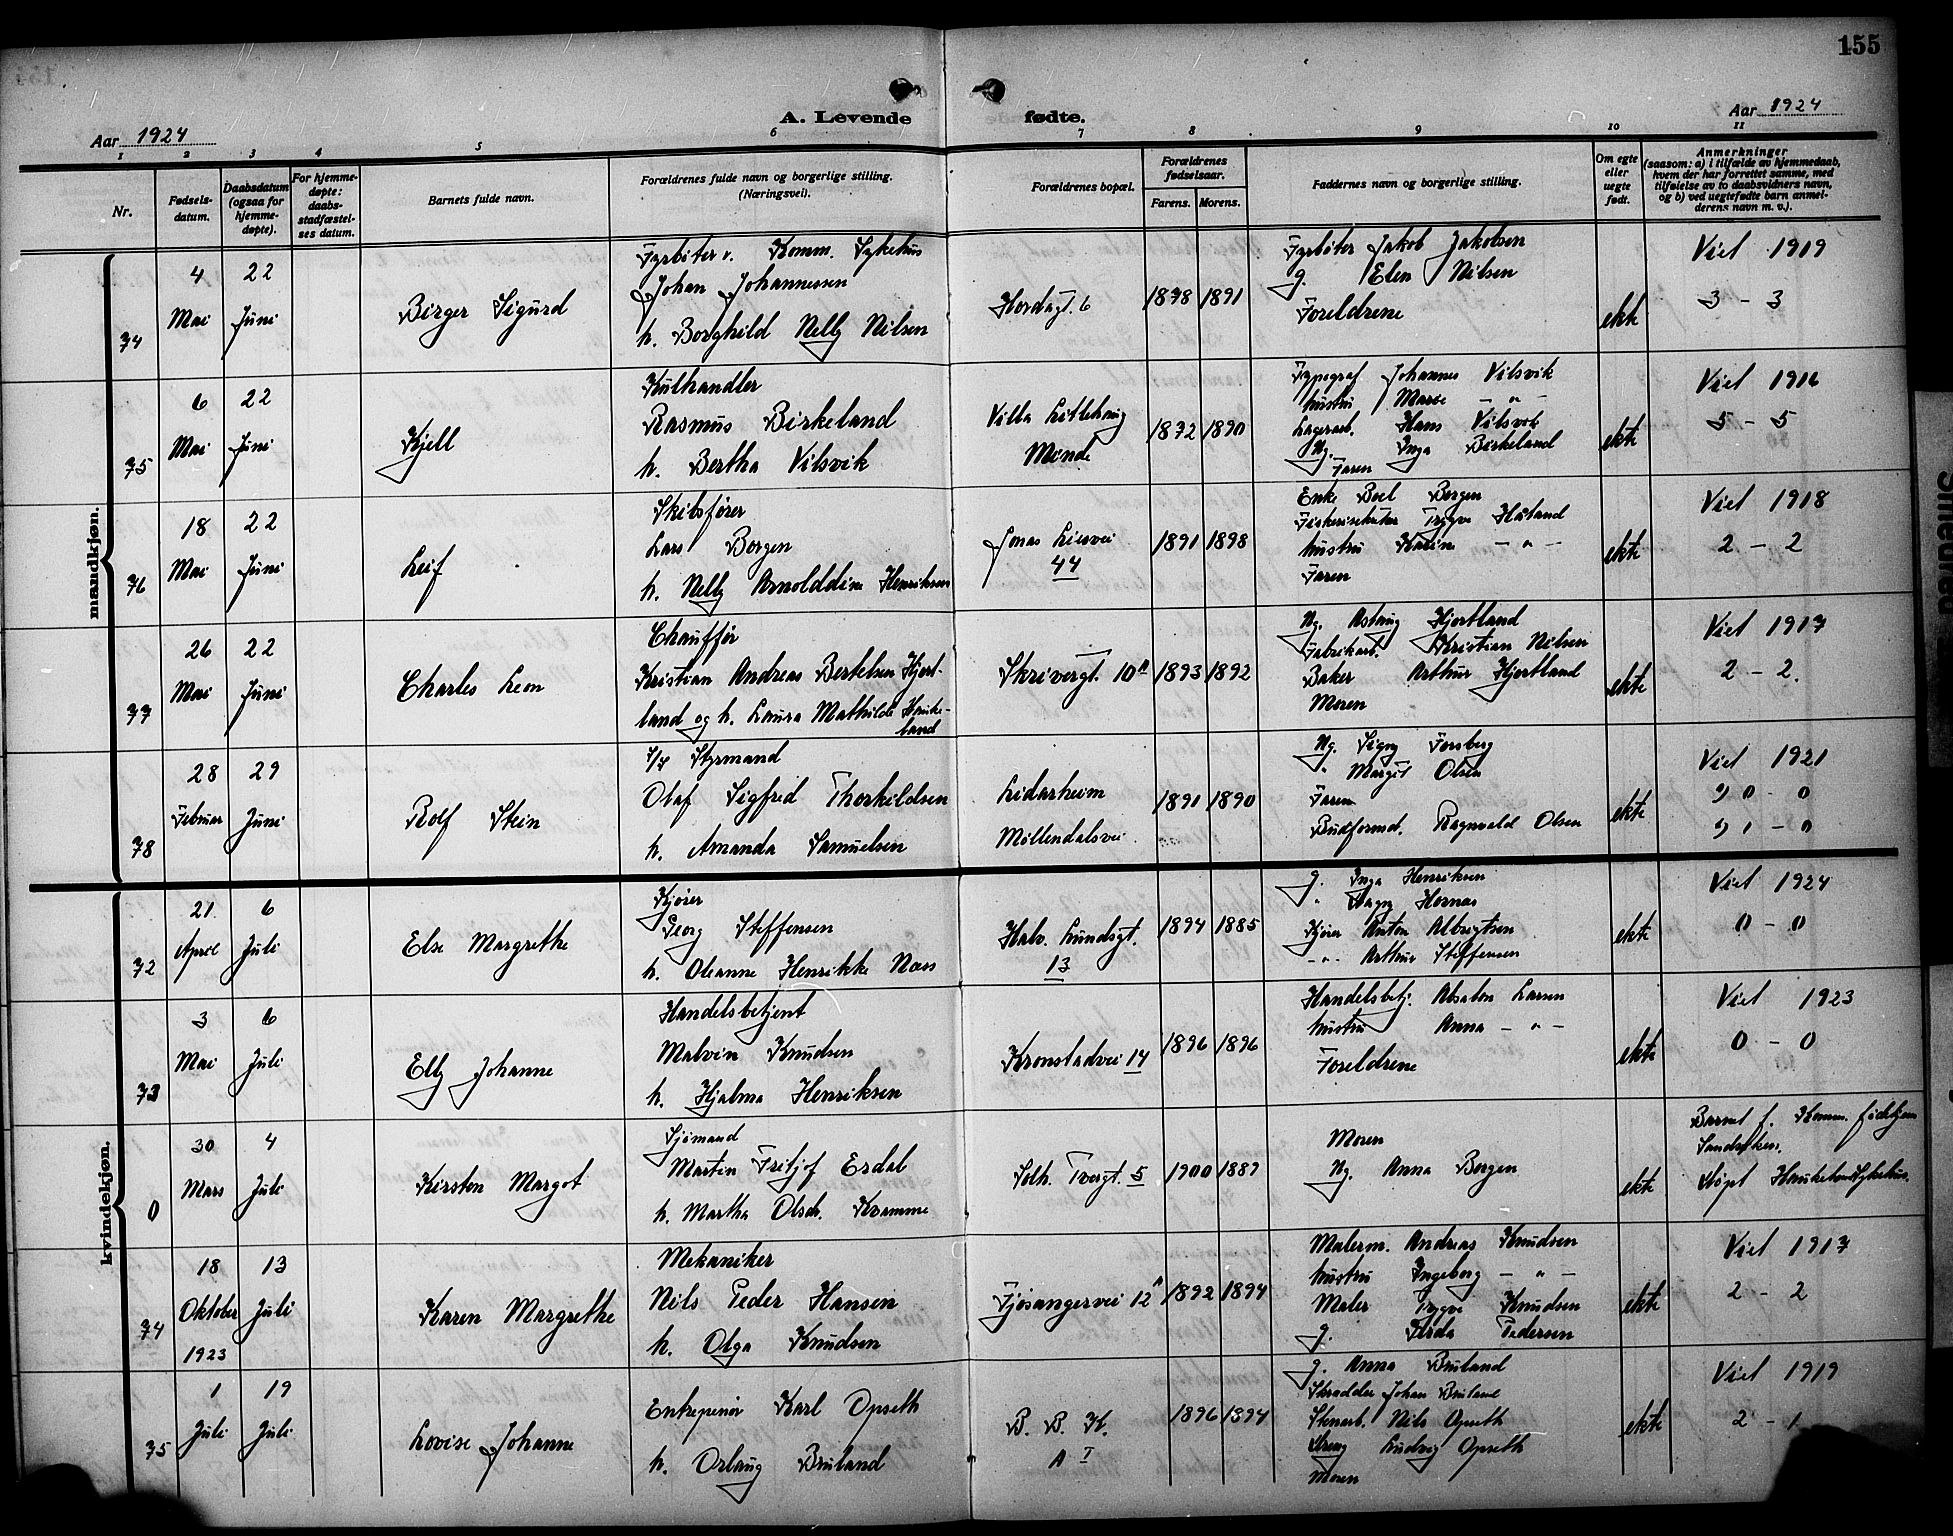 155
Aar 1924
A. Levende fødte.
Aar 1924
1 2 3 4 5 6 7 8 9 10 11
Nr.
Fødsels-
datum.
Daabsdatum
(ogsaa for
hjemme-
døpte).
For hjemme-
døpte:
daabs-
stadfæstel-
ses datum.
Barnets fulde navn.
Forældrenes fulde navn og borgerlige stilling.
(Næringsvei).
Forældrenes bopæl.
Forældrenes
fødselsaar.
Farens. Morens.
Faddernes navn og borgerlige stilling.
Om egte
eller
uegte
født.
Anmerkninger
(saasom: a) i tilfælde av hjemmedaab,
hvem der har forrettet samme, med
tilføielse av to daabsvidners navn,
og b) ved uegtefødte barn anmel-
derens navn m. v.).
mandkjøn.
74
4
Mai
22
Juni
Birger Sigurd
Fyrbøter v. Komm. Sykehus
Johan Johannessen
h. Borghild Nelly Nilsen
Hordagt. 6
1878 1891
Fyrbøter Jakob Jakobsen
g. Elen Nilsen
Foreldrene
ekte
Viet 1919
3 - 3
75
6
Mai
22
Juni
Kjell
Kulhandler
Rasmus Birkeland
h. Bertha Vilsvik
Villa Litlehaug
Minde
1872 1890
Typograf Johannes Vilsvik
hustru Marie - " -
Lagerarb. Hans Vilsvik
Ug. Inga Birkeland
Faren
ekte
Viet 1916
5 - 5
76
18
Mai
22
Juni
Leif
Skibsfører
Lars Borgen
h. Nelly Arnolddine Henriksen
Jonas Liesvei
44
1891 1898
Enke Boel Borgen
Trygve Haland
hustru Karin - " -
Faren
ekte
Viet 1918
2 - 2
77
26
Mai
22
Juni
Charles Leon
Chauffør
Kristian Andreas Bertelsen Hjort-
land og h. Laura Mathilde Hauke-
land
Skrivergt. 10a
1893 1892
Ug. Astrup Hjortland
Fabrikarb. Kristian Nilsen
Baker Arthur Hjortland
Moren
ekte
Viet 1917
2 - 2.
78
28
Februar
29
Juni
Rolf Stein
Styrmand
Olaf Sigfred Thorkildsen
h. Amanda Samuelsen
Lidarheim
Møllendalsvei
1891 1890
Ug. Signy Forsberg
" Margit Olsen
Faren
Budformd. Ragnvald Olsen
ekte
Viet 1921
0 - 0
1 - 0
kvindekjøn.
72
21
April
6
Juli
Else Margrethe
Kjører
Georg Steffensen
h. Oleanne Henrikke Næss
Halv. Lundsgt.
13
1894 1885
g. Inga Henriksen
" Dagny Hornæs
Kjører Anton Albregtsen
- " - Arthur Steffensen
ekte
Viet 1924
0 - 0
73
3
Mai
6
Juli
Elly Johanne
Handelsbetjent
Malvin Knudsen
h. Hjalma Henriksen
Kronstadvei 14
1896 1896
Handelsbetj. Absalon Larsen
hustru Anna - " -
Foreldrene
ekte
Viet 1923
0 - 0
0
30
Mars
4
Juli
Kirsten Margot
Sjømand
Martin Fritjof Erdal
h. Martha Olsdr. Kvamme
Solh. Tvergt. 5
1900 1887
Moren
Ug. Anna Borgen
ekte
Barnet f. Komm. fødehjem
Sandviken.
Døpt Haukeland Sykehus.
74
18
Oktober
1923
13
Juli
Karen Margrethe
Mekaniker
Nils Peder Hansen
h. Olga Knudsen
Fjøsangervei 12a
1892 1894
Malerm. Andreas Knudsen
hustru Ingeborg - " -
Maler Trygve Knudsen
g. Gerda Pedersen
ekte
Viet 1917
2 - 2
75
1
Juli
19
Juli
Lovise Johanne
Entreprenør Karl Opseth
h. Oslaug Bruland
B. B. K.
A I
1896 1894
g. Anna Bruland
Skrædder Johan Bruland
Stenarb. Nils Opseth
Dreng Ludvig Opseth
Moren
ekte
Viet 1919
2 - 1